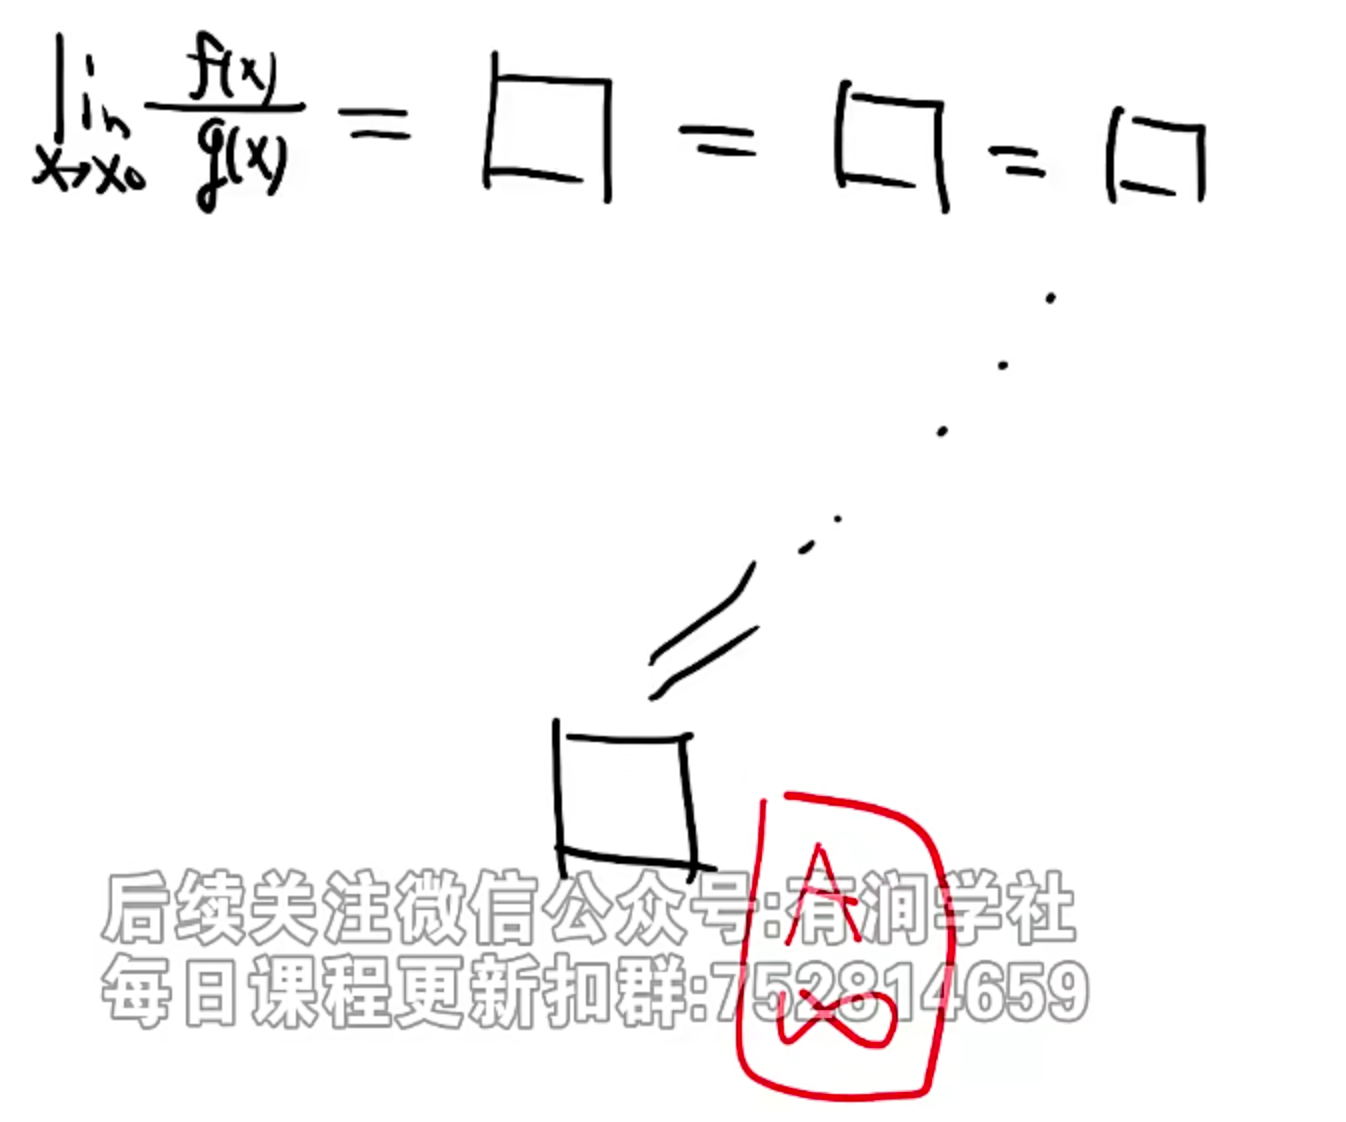 lim f(x)/g(x) = □ = □ = □
x→x₀
= □
A
∞
后续关注微信公众号:有润学社
每日课程更新扣群:752814659